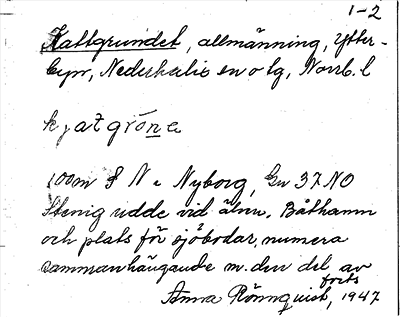 1-2
Kattgrundet, allmänning, Ytter-
byn, Nederkalix sn o lg, Norrb. l
kjatgrōne
100m S N. Nyborg, Gv 37 NO
Stenig udde vid älven. Båthamn
och plats för sjöbodar, numera
sammanhängande m. den del av
forts
Anna Rönnquist, 1947